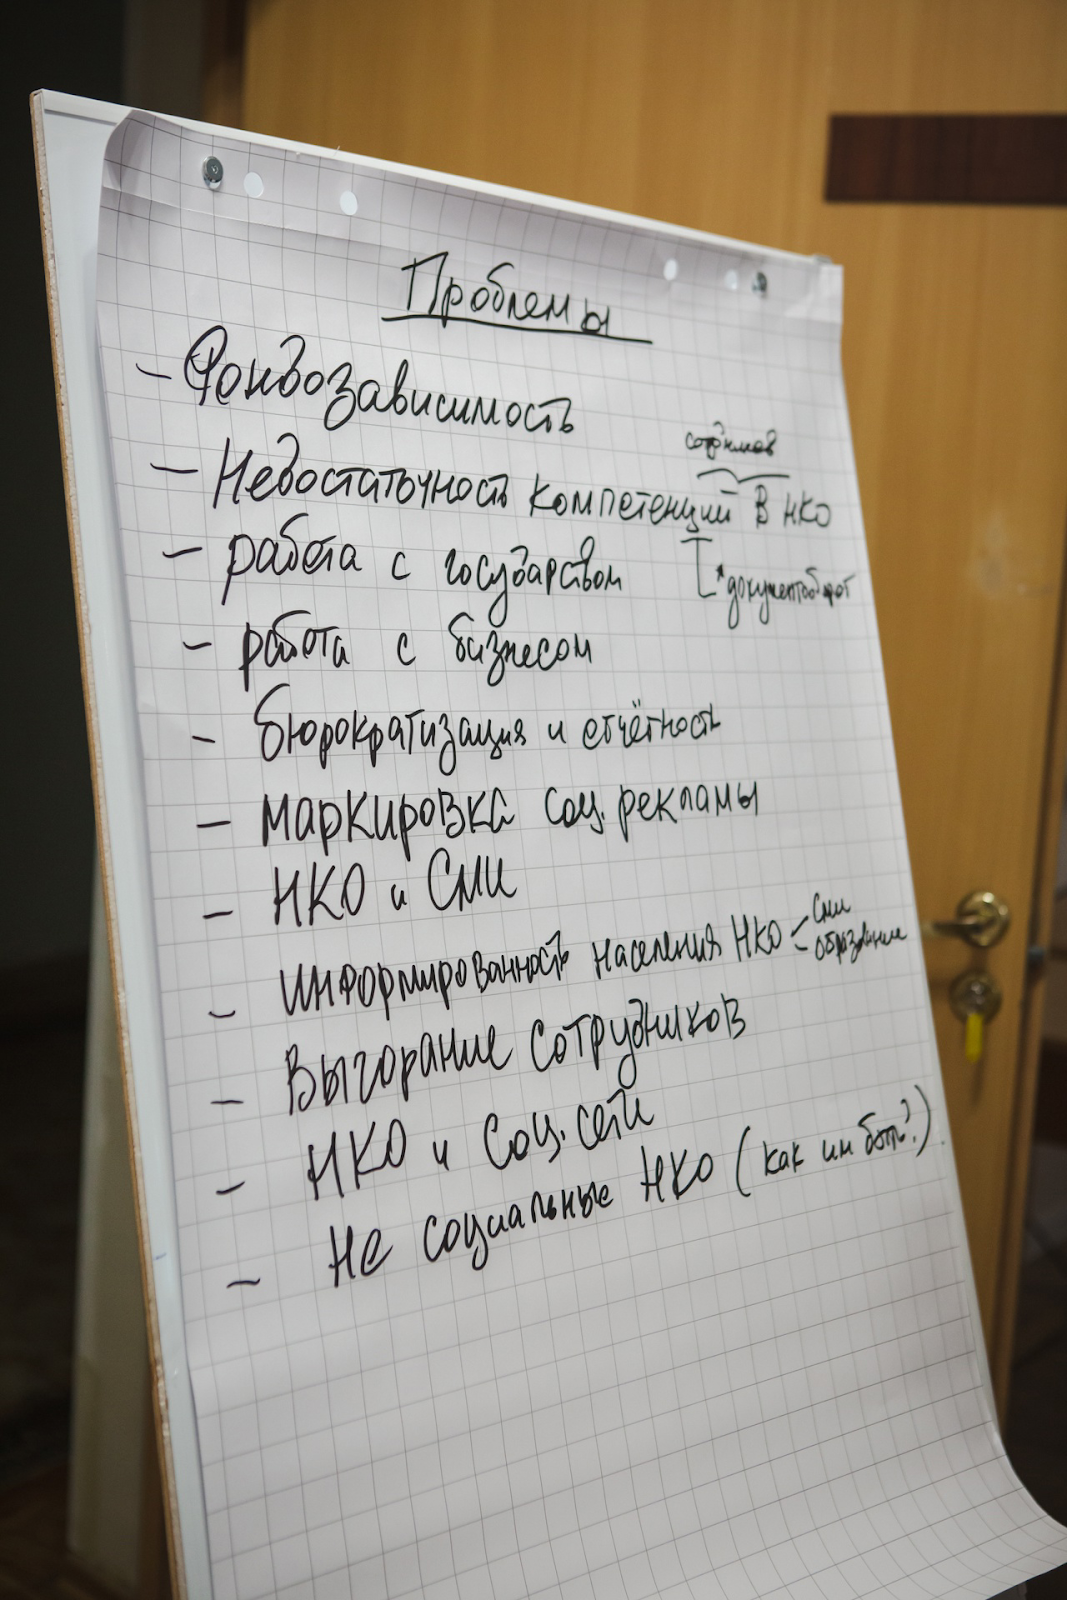 Проблемы
- Фондозависимость
- Недостаточность компетенций в НКО
- работа с государством
документооборот
- работа с бизнесом
- бюрократизация и отчётность
- маркировка соц. рекламы
- НКО и СМИ
- информированность населения НКО
СМИ
образование
- Выгорание сотрудников
- НКО и Соц. сети
- Не социальные НКО (как им быть?)